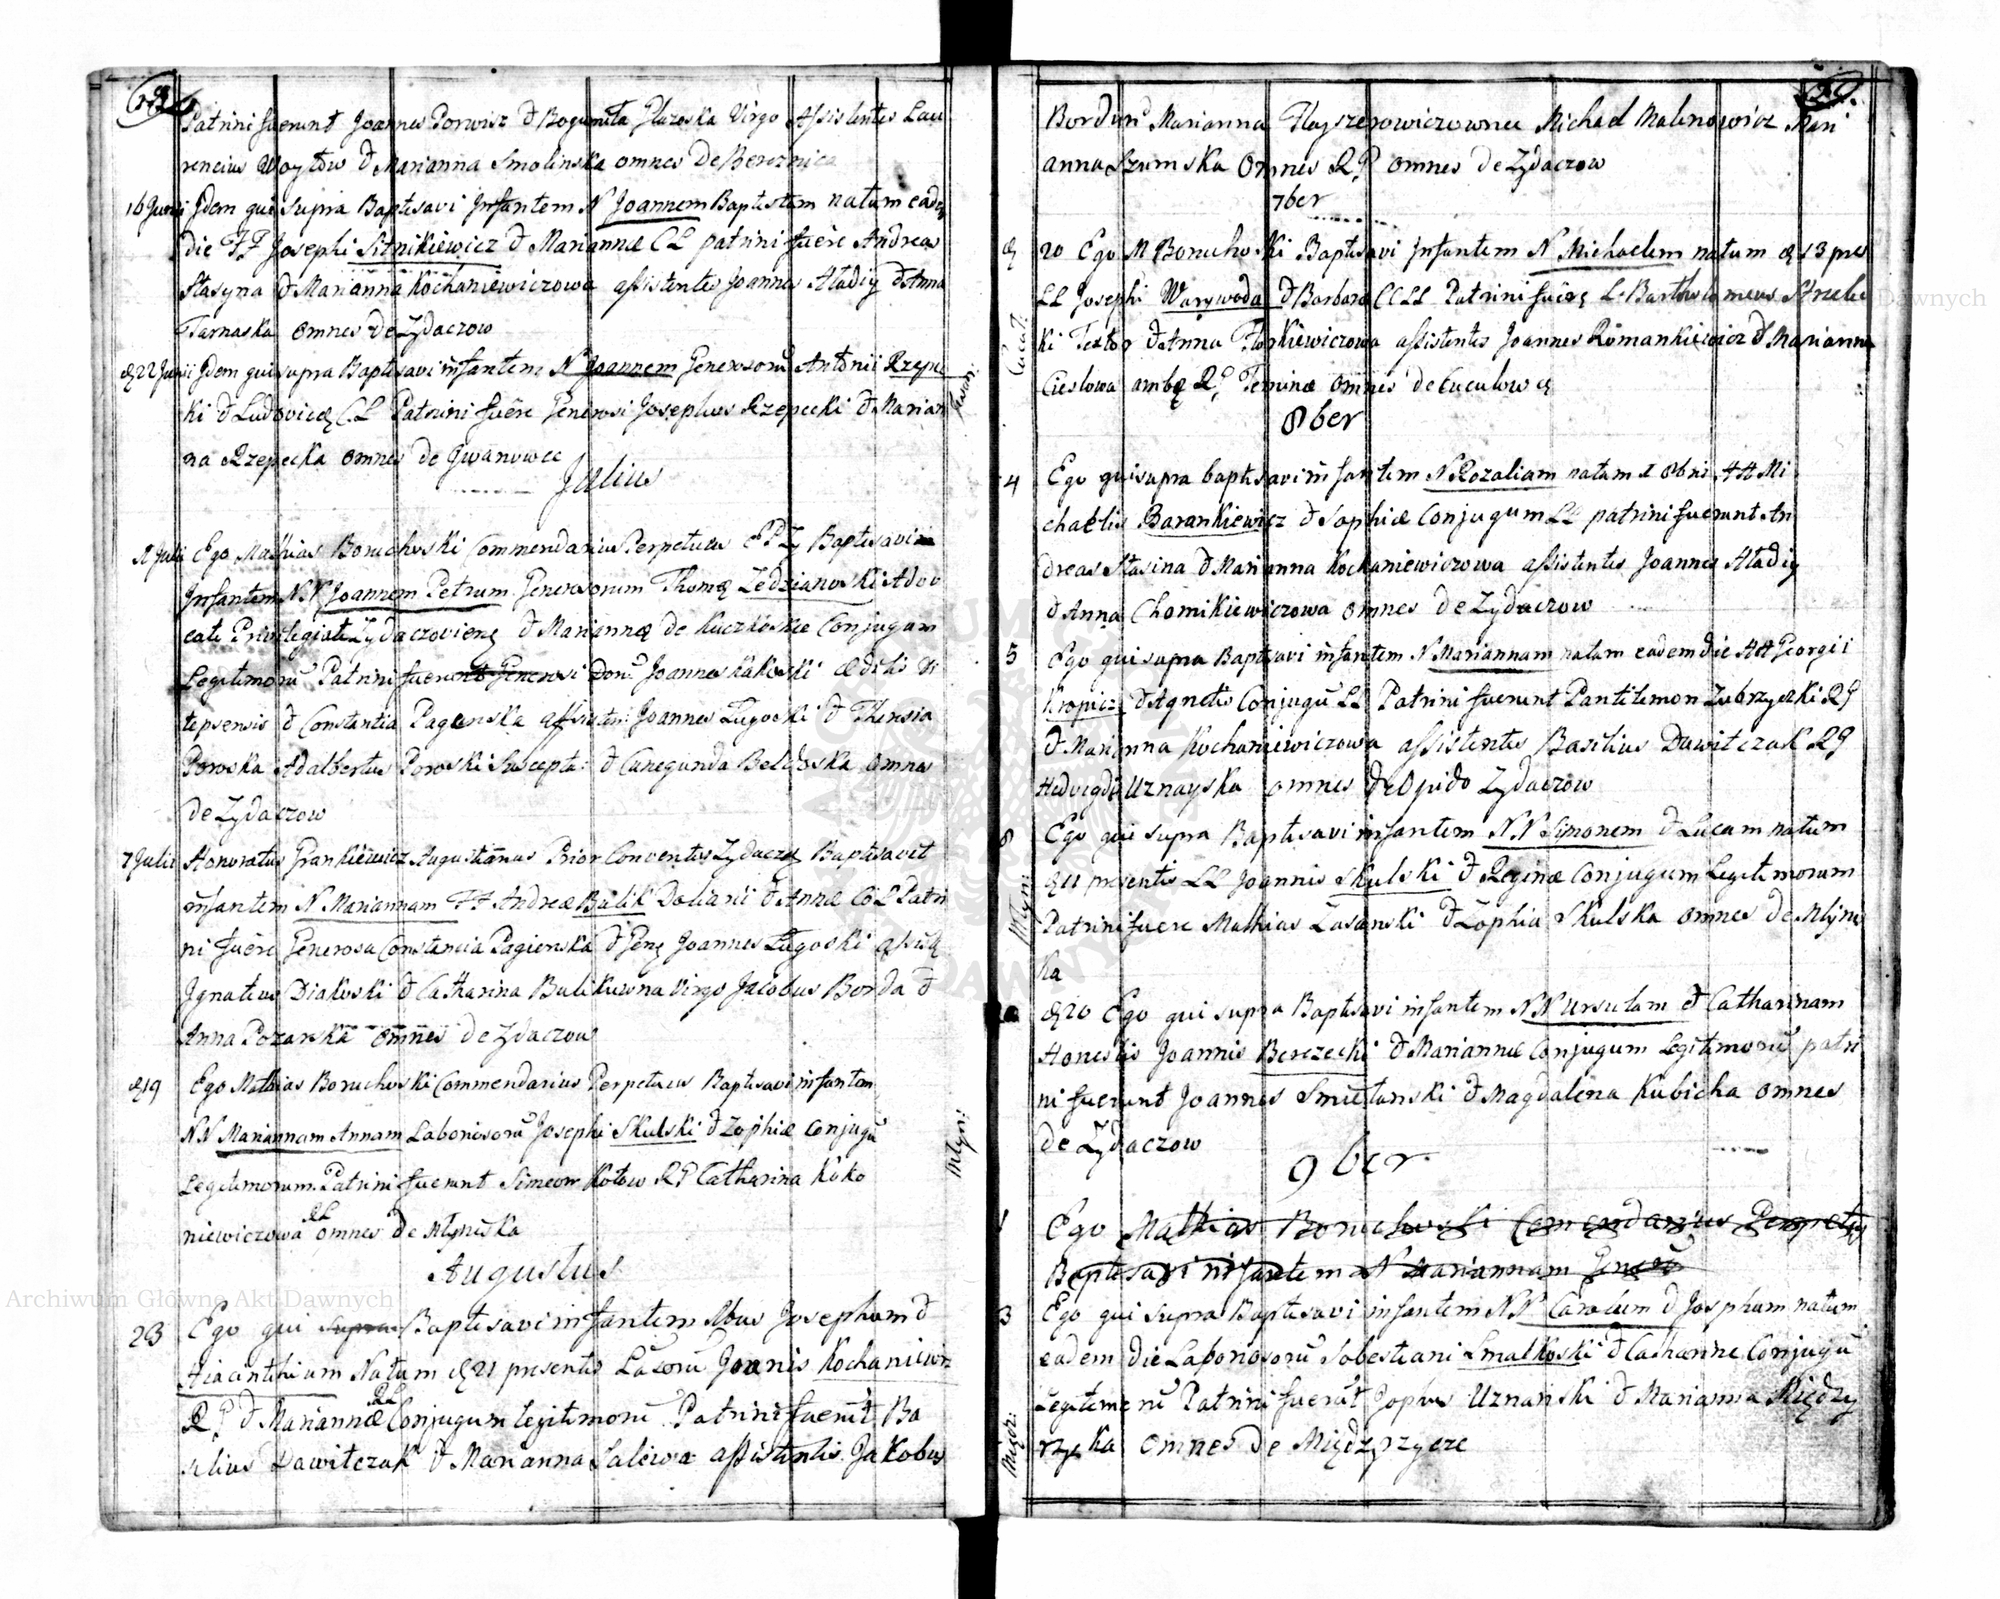 Patrini fuerunt Joannes Porwisz & Bogumiła Virgo Assistentes Lau
rencius Woytow & Marianna Smolinska omnes de Bereznica
16 Junii Jdem qui supra Baptisavi Infantem N Joannem Baptistam natum eadē
die FF Josephi Sitnikiewicz & Mariannæ CL patrini fuêre Andreas
Stasyna & Marianna Kochaniewiczowa assistentes Joannes Hładiy & Anna
Tarnaska omnes de Zydaczow
22 Junii Jdem qui supra Baptisavi infantem N Joannem Generosorū Antonii Rzepec
ki & Ludovicę CL Patrini fuêre Generosi Josephus Rzepecki & Marian
na Rzepecka omnes de Jwanowce
Julius
Julii Ego Mathias Boruchoski Commendarius Perpetuus EPZ Baptisavi
Infantem NN Joannem Petrum Generosorum Thomę Zedzianoski Advo
cati Privilegiati Zydaczoviensę & Mariannę de Kuczkoskie Conjugum
Legitimorū Patrini fuerunt Generosi Donī Joannes Kakoski ædilis Vi
tepsensis & Constantia Pagenska assisten: Joannes Ługoski & Theresia
Poroska Adalbertus Poroski Suscepta: & Cunegunda Belchska omnes
de Zydaczow
7 Julii Honoratus Grankiewicz Augustianus Prior Conventus Zydaczę Baptisavit
infantem N. Mariannam FF Andreæ Bulik Doliarii & Annæ CōL Patri
ni fuêre Generosa Constancia Pagienska & Genę Joannes Ługoski assistę
Jgnatius Diakoski & Catharina Bulikuwna Virgo Jacobus Borda &
Anna Pozarska omnes de Zydaczow
19 Ego Mathias Boruchoski Commendarius Perpetuus Baptisavi infantem
NN Mariannam Annam Laboriosorū Josephi Skulski & Zophiæ Conjugū
Legitimorum. Patrini fuerunt Simeon Kotow RG Catharina Koko
niewiczowa RL omnes de Młyniska
Młyn:
Augustus
23 Ego qui supra Baptisavi infantem Nbus Josephum &
Hiacinthium Natum 21 presentis Laborū Joanis Kochaniewicz
RG & Mariannæ RL Conjugum legitimorū Patrini fuerūt Ba
silius Dawitczak & Marianna Salewa assistentes Jakobus
Bordun Marianna Flayszerowiczowna Michael Malinowicz Mari
anna Szumska Omnes RG omnes de Zydaczow
7ber
20 Ego M Boruchoski Baptisavi Infantem N Michaelem natum 13 pres
LL Josephi Warywoda & Barbara CCLL Patrini fuêre L: Bartholomeus Strzelec
ki Textor & Anna Florkiewiczowa assistentes Joannes Romankiewicz & Marianna
Cieslowa ambę RG Feminæ omnes de Cucułowcę
8ber
4 Ego qui supra baptisavi infantem N Rozaliam natam 1 8bris HH Mi
chaelis Barankiewicz & Sophiæ Conjugum LL patrini fuerunt An
dreas Stasina & Marianna Kochaniewiczowa assistentes Joannes Hładiy
& Anna Chomikiewiczowa omnes de Zydaczow
5 Ego qui supra Baptisavi infantem N Mariannam natam eadem die HH Georgii
Kropicz & Agnetis Conjugū LL Patrini fuerunt Pantilemon Zubrzycki RG
& Marianna Kochaniewiczowa assistentes Basilius Dawitczak RG
Hedvigdis Uznayska omnes de Opido Zydaczow
8 Ego qui supra Baptisavi infantem N.N Simonem & Lucam natum
11 presentis LL Joannis Skulski & Reginæ Conjugum Legitimorum
Patrini fuere Mathias Zasanski & Zophia Skulska omnes de Młynis
ka
Młyn:
20 Ego qui supra Baptisavi infantem NN Ursulam & Catharinam
Honestis Joannis Berezecki & Mariannæ Conjugum Legitimorū patri
ni fuerunt Joannes Smietanski & Magdalena Kubicka omnes
de Zydaczow
9ber
1 Ego Mathias Boruchoski Comendarius Perpetuus
Baptisavi infantem N Mariannam Generū
3 Ego qui supra Baptisavi infantem NN Carolum & Josphum natum
eadem die Laboriosorū Sobestiani Smalkoski & Catharinæ Conjugū
Legitimorū Patrini fuerūt Jophus Uznanski & Marianna Między
rzycka omnes de Międzyrzycze
Międz:
Archiwum Główne Akt Dawnych